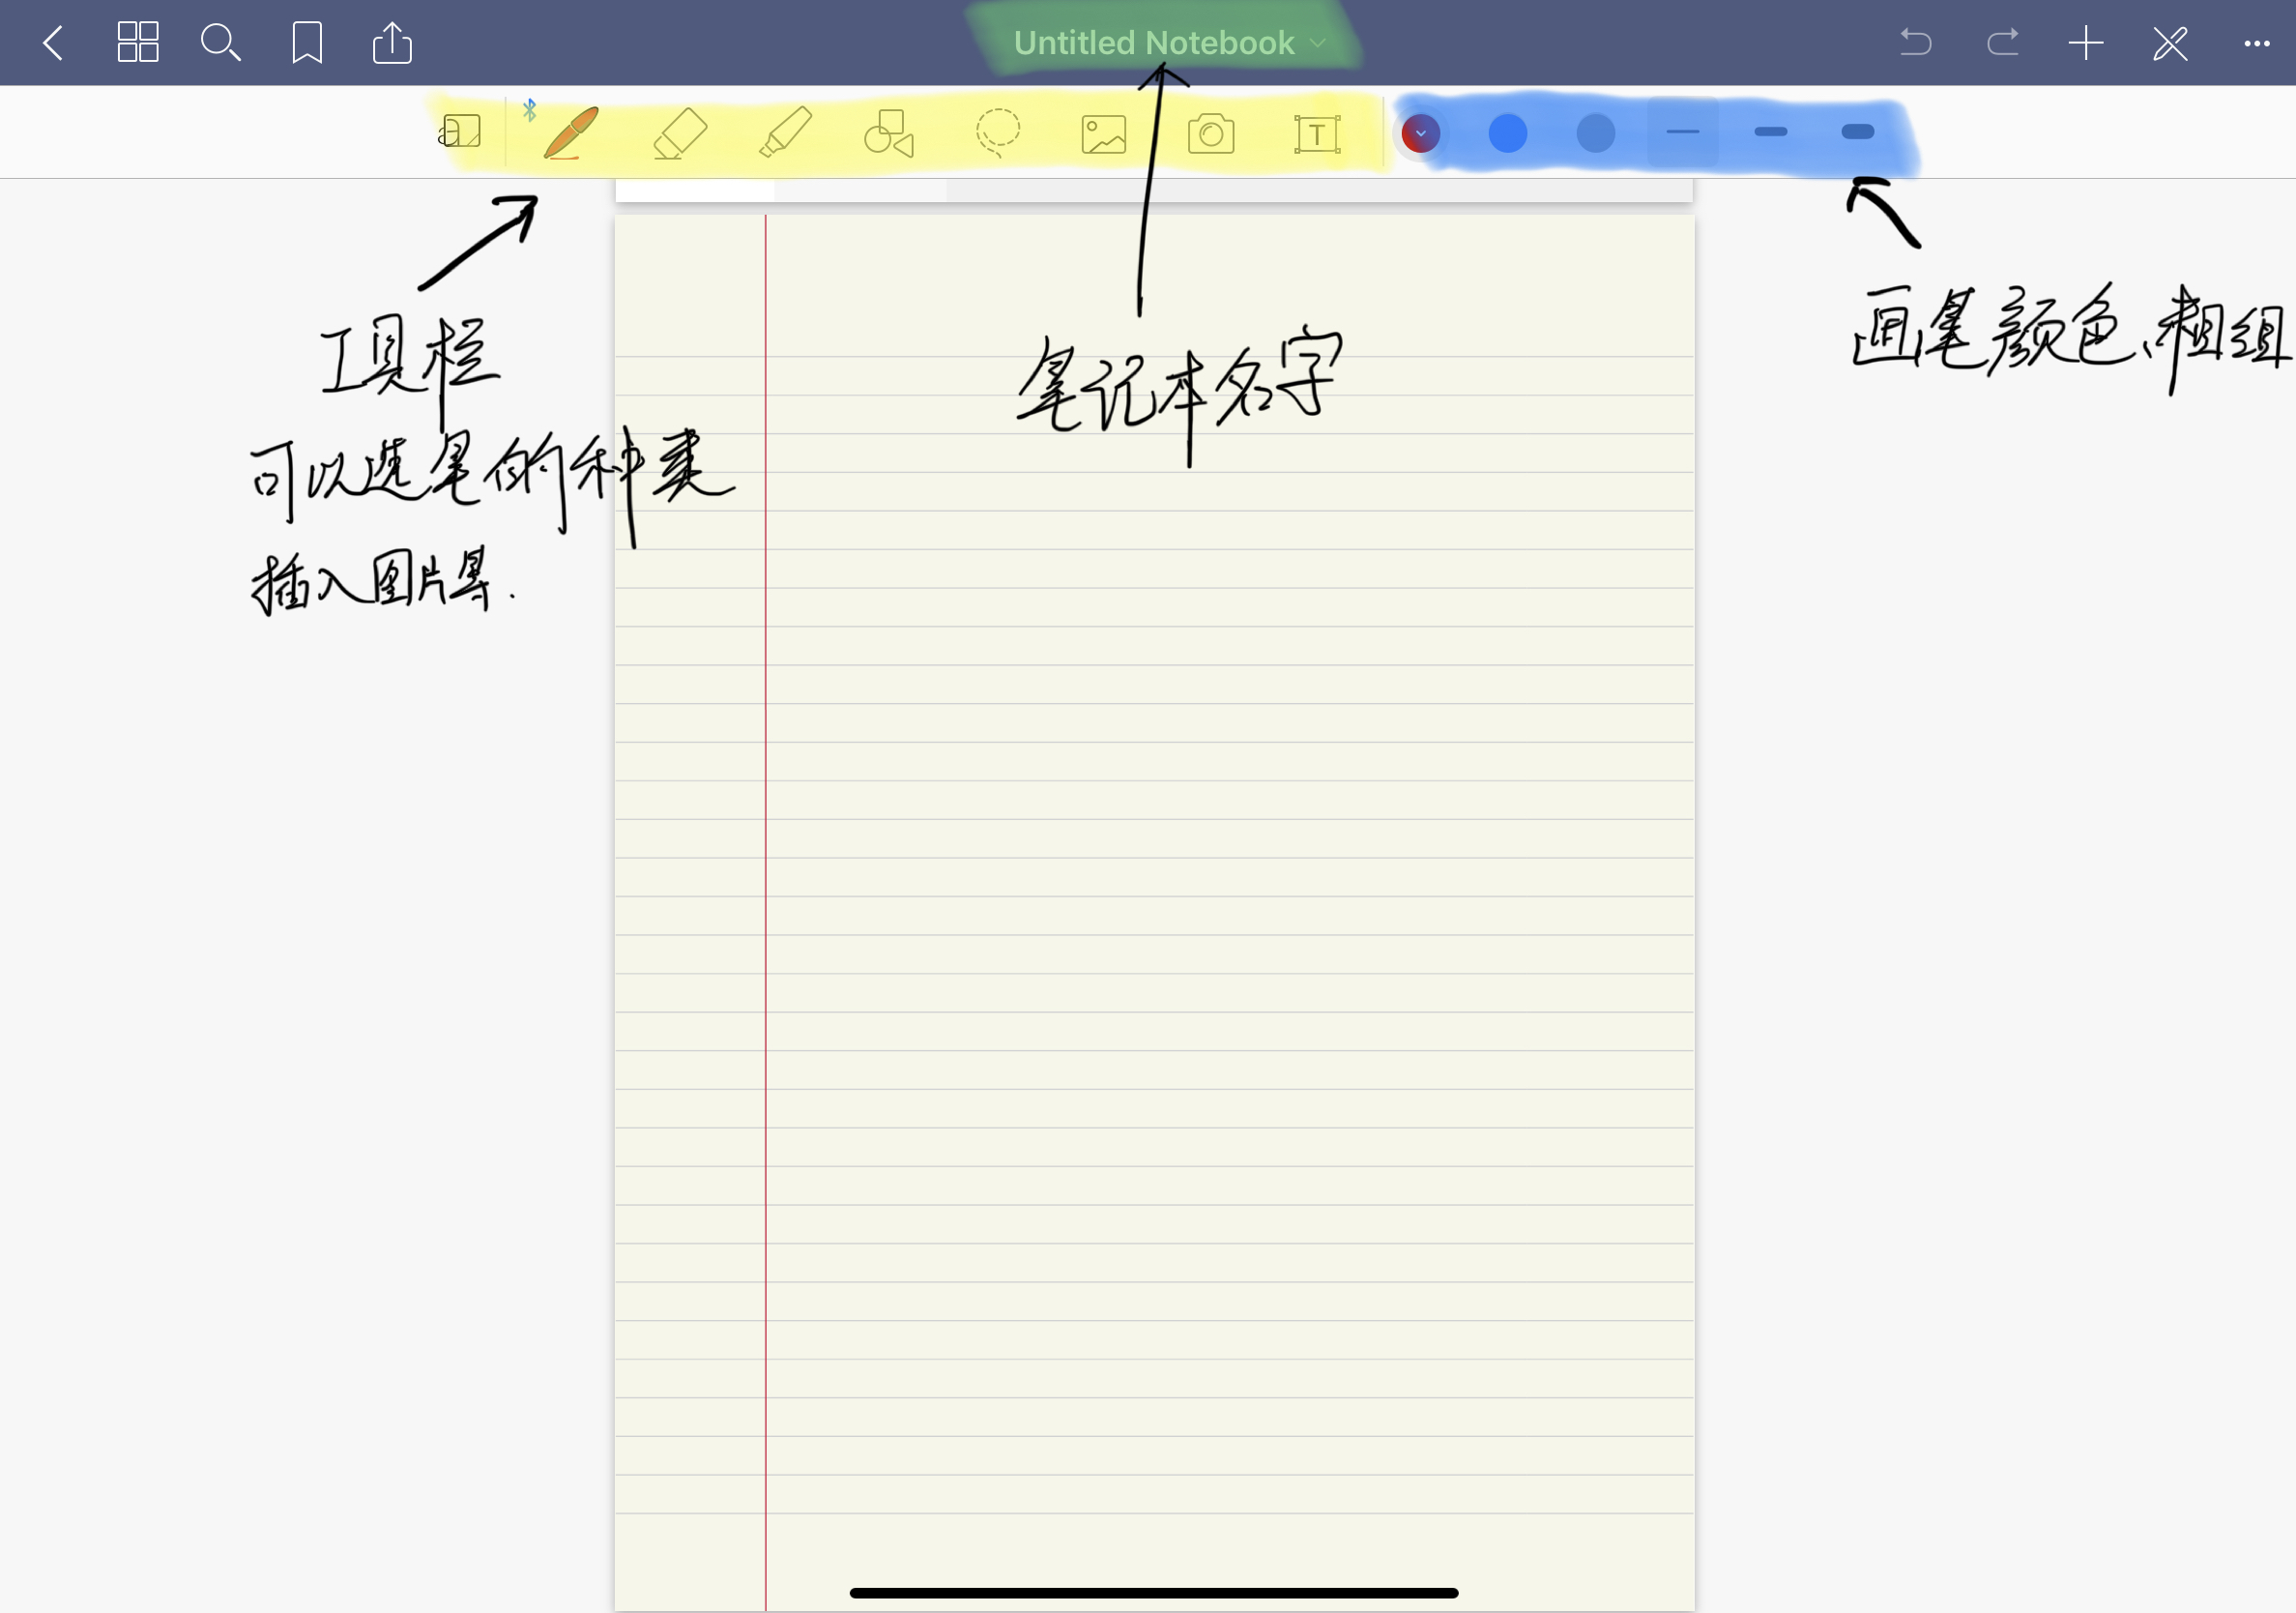 Untitled Notebook
T
工具栏
可以选笔的种类
插入图片等.
笔记本名字
画笔颜色、粗细